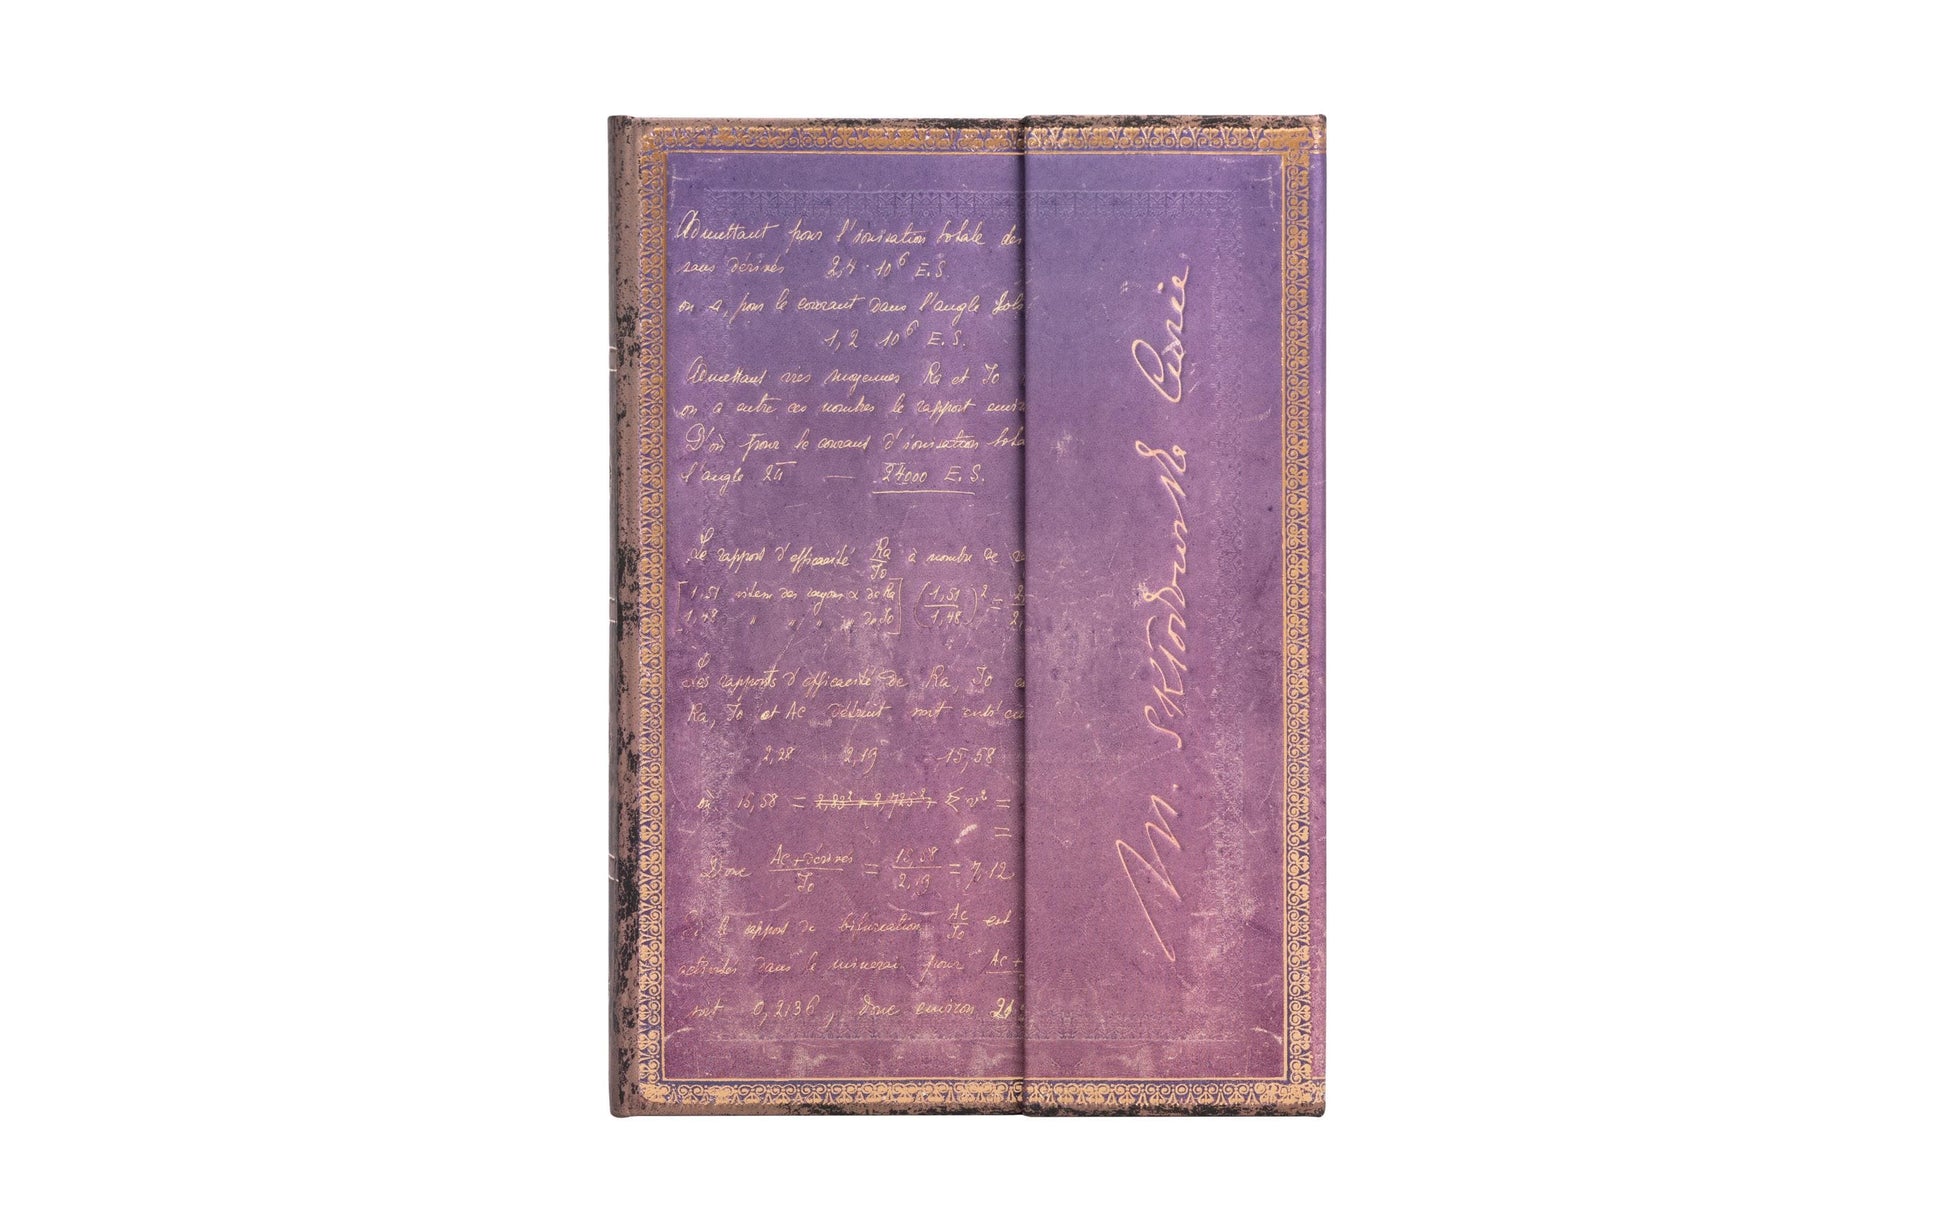 Admettant pour l'ionisation totale des
sans dérivés 2,4 · 10⁶ E.S.
on a, pour le courant dans l'angle
1,2 10⁶ E.S.
Admettant moyennes Ra et Io
on a entre ces nombres le rapport
D'où pour le courant d'ionisation
l'angle 2π — 24000 E.S.
Le rapport d'efficacité Ra/Io à nombre de
[1,51 vitesse des rayons α de Ra] (1,51/1,48)² =
1,48 " " " " de Io]
Les rapports d'efficacité de Ra, Io
Ra, Io et Ac détruit sont
2,28 2,19 15,58
où 15,58 = 2,83² + 2,725² + Σ v² =
=
Donc Ac+dérivés/Io = 15,58/2,19 = 7,12
le rapport de bifurcation Ac/Io est
activités dans le minerai pour Ac +
soit 0,2136, donc environ
M. Skłodowska Curie